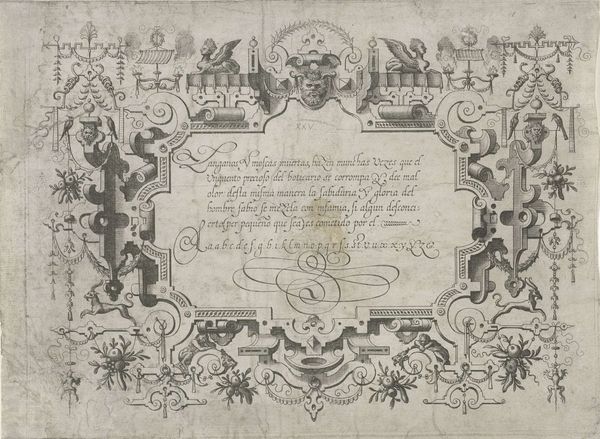 XXV
Langonas Y moscas muertas, hazen munchas vezes que el
Unguento precioso del boticario se corrompa Y dee mal
olor desta misma manera la sabiduria Y gloria del
hombre sabio se mezcla con infamia, si algun desconci-
erto (per pequeño que sea) es cometido por el.
A a b c d e f g h i k l m n o p q r ſ s t v u w x y z